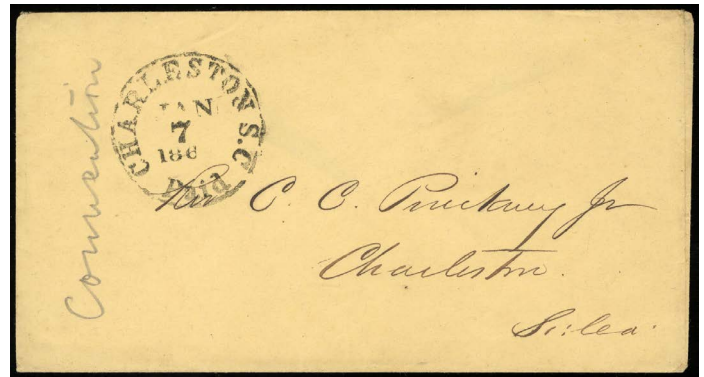 Convention
CHARLESTON S.C
JAN
7
186
Paid
Rev C. C. Pinckney Jr
Charleston.
So: Ca